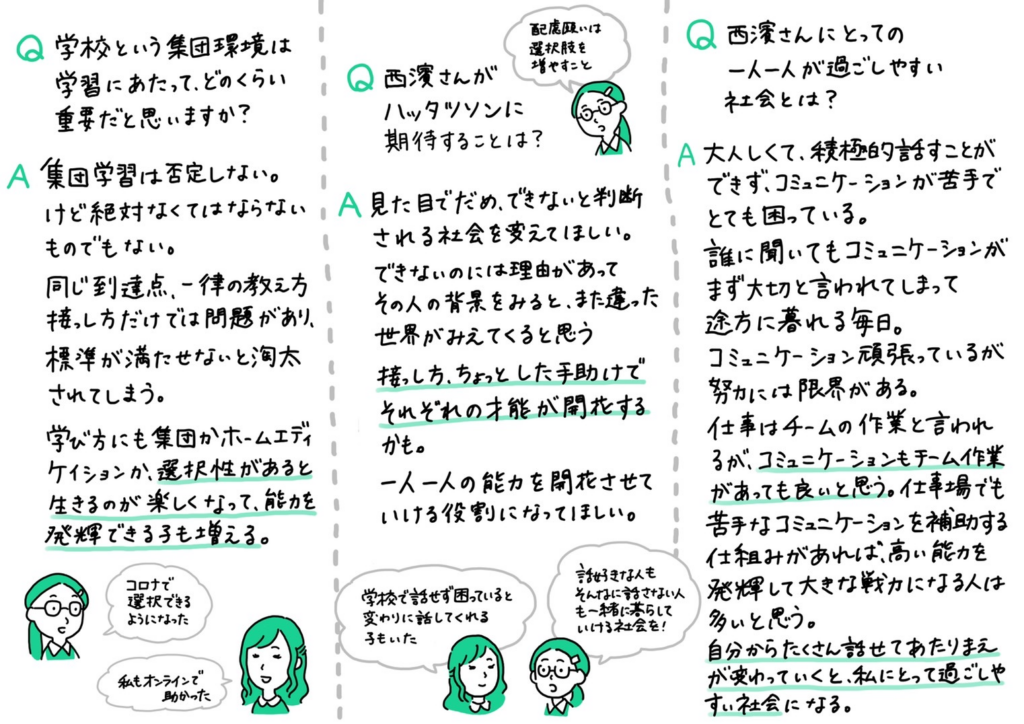 Q 学校という集団環境は
学習にあたって、どのくらい
重要だと思いますか?
A 集団学習は否定しない。
けど絶対なくてはならない
ものでもない。
同じ到達点、一律の教え方
接っし方だけでは問題があり、
標準が満たせないと淘汰
されてしまう。
学び方にも集団かホームエディ
ケイションか、選択性があると
生きるのが楽しくなって、能力を
発輝できる子も増える。
コロナで
選択できる
ようになった
私もオンラインで
助かった
Q 西濱さんが
ハッタツソンに
期待することは?
配慮願いは
選択肢を
増やすこと
A 見た目でだめ、できないと判断
される社会を変えてほしい。
できないのには理由があって
その人の背景をみると、また違った
世界がみえてくると思う
接っし方、ちょっとした手助けで
それぞれの才能が開花する
かも。
一人一人の能力を開花させて
いける役割になってほしい。
学校で話せず困っていると
変わりに話してくれる
子もいた
話好きな人も
そんなに話さない人
も一緒に暮らして
いける社会を!
Q 西濱さんにとっての
一人一人が過ごしやすい
社会とは?
A 大人しくて、積極的話すことが
できず、コミュニケーションが苦手で
とても困っている。
誰に聞いてもコミュニケーションが
まず大切と言われてしまって
途方に暮れる毎日。
コミュニケーション頑張っているが
努力には限界がある。
仕事はチームの作業と言われ
るが、コミュニケーションもチーム作業
があっても良いと思う。仕事場でも
苦手なコミュニケーションを補助する
仕組みがあれば、高い能力を
発輝して大きな戦力になる人は
多いと思う。
自分からたくさん話せてあたりまえ
が変わっていくと、私にとって過ごしや
すい社会になる。